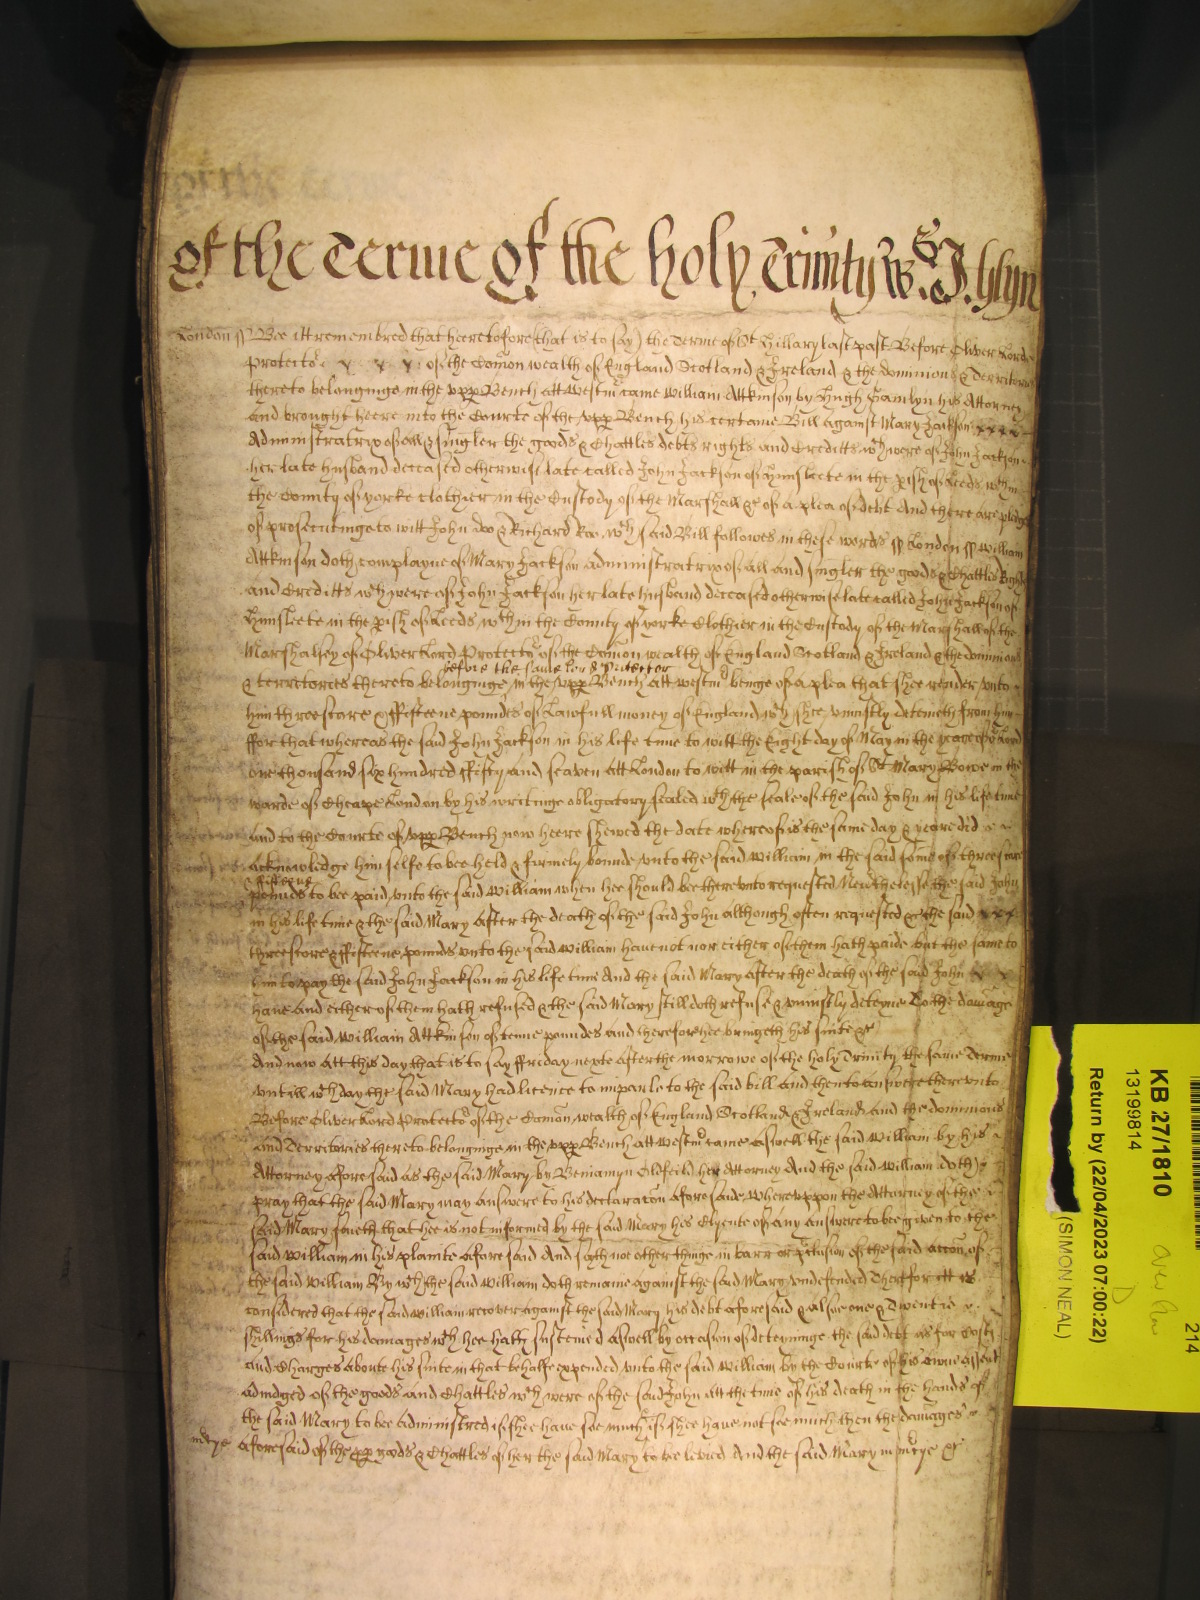 of the Terme of the holy Trinity W. S. J. Glyn
London ss Bee itt remembred that heeretofore (that is to say) the Terme of St Hillary last past Before Oliver Lord
Protector x x x of the Comon wealth of England Scotland & Ireland & the dominions & Territories
thereto belonginge in the upp Bench att Westmr came William Attkinson by Hugh Hamlyn his Attorney
and brought heere into the Courte of the upp Bench his certaine Bill against Mary Jackson x x x x
Administratrix of all & singler the goods & Chattles debts rights and Creditts wch were of John Jackson
her late husband deceased otherwise late called John Jackson of Hunsleete in the pish of Leeds wthin
the County of yorke Clothier in the Custody of the Marshall &c of a plea of debt And there are pledges
of prosecutinge to witt John doo & Richard Roo wch said Bill followes in these words ss London ss William
Attkinson doth complayne of Mary Jackson administratrix of all and singler the goods & Chattles Rights
and Creditts wch were of John Jackson her late husband deceased otherwise late called John Jackson of
Hunsleete in the pish of Leeds wthin the County of yorke Clothier in the Custody of the Marshall of the
Marshalsey of Oliver Lord Protector of the Comon wealth of England Scotland & Ireland & the dominions
before the said Lord Protector
& territories thereto belonginge in the upp Bench att Westmr beinge of a plea that shee render unto
him three score & ffifteene pounds of Lawfull money of England wch shee uniustly deteineth from him
ffor that whereas the said John Jackson in his life time to witt the Eight day of May in the yeare of or Lord
one thousand six hundred ffifty and seaven att London to witt in the parish of St Mary Bowe in the
warde of Cheape London by his writinge obligatory sealed wth the seale of the said John in his life time
and to the Courte of upp Bench now heere shewed the date whereof is the same day & yeare did
acknowledge him selfe to bee held & firmely bounde unto the said William in the said some of three score
& ffifteene
pounds to bee paid unto the said William when hee should bee thereunto requested Neutheless the said John
in his life time & the said Mary after the death of the said John although often requested &c the said x x x
three score & ffifteene pounds unto the said William have not nor either of them hath paide but the same to
him to pay the said John Jackson in his life time And the said Mary after the death of the said John x x
have and either of them hath refused & the said Mary still doth refuse & uniustly deteyne To the damage
of the said William Attkinson of tenne poundes and therefore hee bringeth his suite &c
And now att this day that is to say ffriday nexte after the morrowe of the holy Trinity the same Terme
untill wch day the said Mary had licence to imparle to the said bill and then to answere thereunto
Before Oliver Lord Protector of the Comon wealth of England Scotland & Ireland and the dominions
and Territories thereto belonginge in the upp Bench att Westmr came aswell the said William by his
Attorney aforesaid as the said Mary by Beniamyn Oldfeild her Attorney And the said William doth
pray that the said Mary may answere to his declaraton aforesaide Whereuppon the Attorney of the
said Mary saieth that hee is not informed by the said Mary his Clyente of any answere to bee given to the
said William in his plainte aforesaid And sayth noe other thinge in barr or pclusion of the said accon of
the said William By wch the said William doth remaine against the said Mary undefended Therefore itt is
considered that the said William recover against the said Mary his debt aforesaid & alsoe one & Twentie
shillings for his damages wch hee hath susteined aswell by occasion of deteyninge the said debt as for Costs
and Charges aboute his suite in that behalfe expended unto the said William by the Courte of his owne assent
adiudged of the goods and Chattles wch were of the said John att the time of his death in the hands of
the said Mary to bee administred if shee have soe much if shee have not soe much then the damages
aforesaid of the pp goods & Chattles of her the said Mary to be levied And the said Mary in mcye &c
mcye
KB 27/1810
13199814
Return by (22/04/2023 07:00:22)
(SIMON NEAL)
214